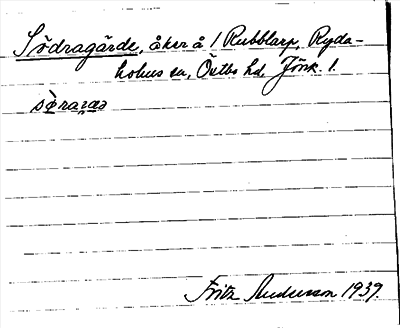 Södragärde, åker å / Rubblarp, Ryda-
holms sn, Östbo hd, Jönk. l.
Fritz Andersson 1939.